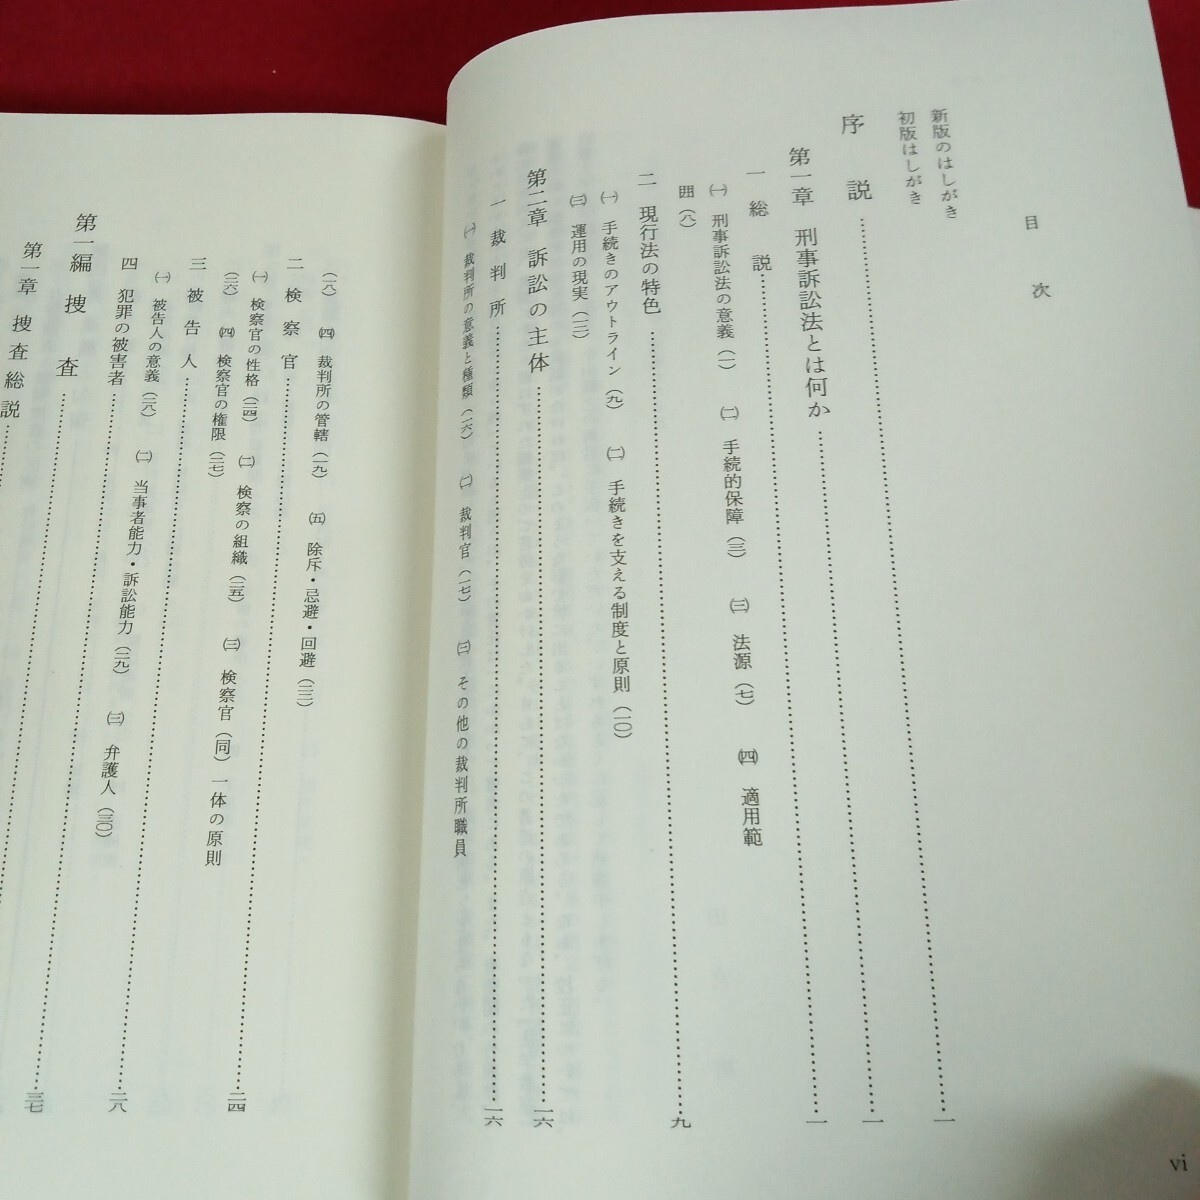 目次
新版のはしがき
初版はしがき
序説……一
第一章 刑事訴訟法とは何か……一
一 総説……一
㈠ 刑事訴訟法の意義(一) ㈡ 手続的保障(三) ㈢ 法源(七) ㈣ 適用範
囲(八)
二 現行法の特色……九
㈠ 手続きのアウトライン(九) ㈡ 手続きを支える制度と原則(一〇)
㈢ 運用の現実(一三)
第二章 訴訟の主体……一六
一 裁判所……一六
㈠ 裁判所の意義と種類(一六) ㈡ 裁判官(一七) ㈢ その他の裁判所職員
(一八) ㈣ 裁判所の管轄(一九) ㈤ 除斥・忌避・回避(二三)
二 検察官……二四
㈠ 検察官の性格(二四) ㈡ 検察の組織(二五) ㈢ 検察官(同)一体の原則
(二六) ㈣ 検察官の権限(二七)
三 被告人
㈠ 被告人の意義(二八) ㈡ 当事者能力・訴訟能力(二九) ㈢ 弁護人(三〇)
四 犯罪の被害者……二八
第一編 捜査
第一章 捜査総説……三七
vi